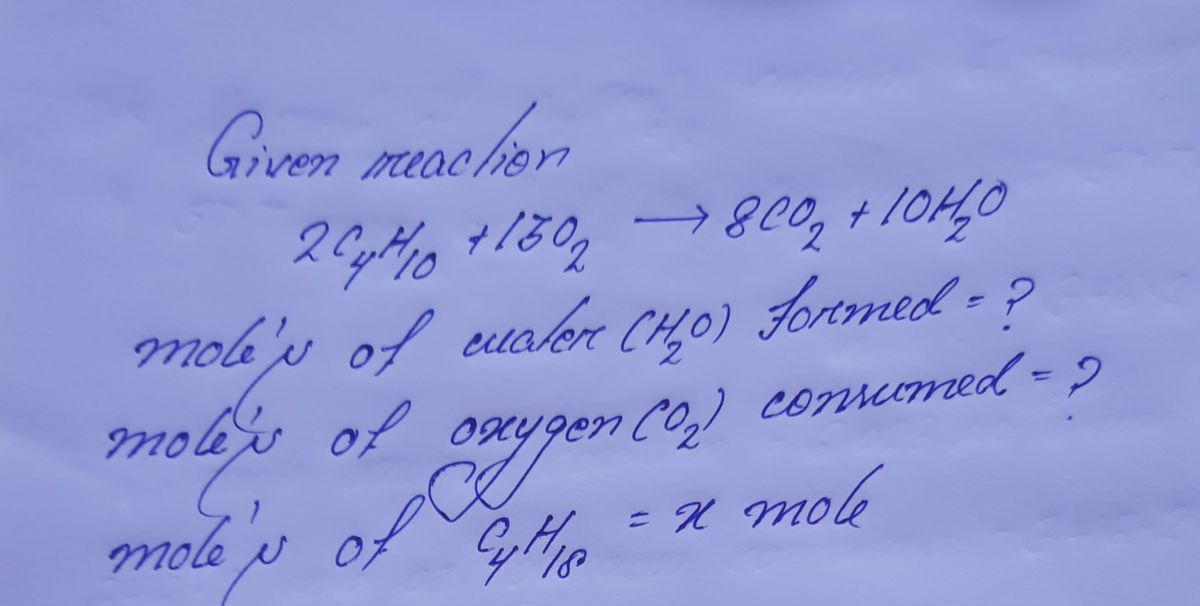 Given reaction
2C₄H₁₀ + 13O₂ → 8CO₂ + 10H₂O
mole's of water (H₂O) formed = ?
mole's of oxygen (O₂) consumed = ?
mole's of C₄H₁₈ = x mole